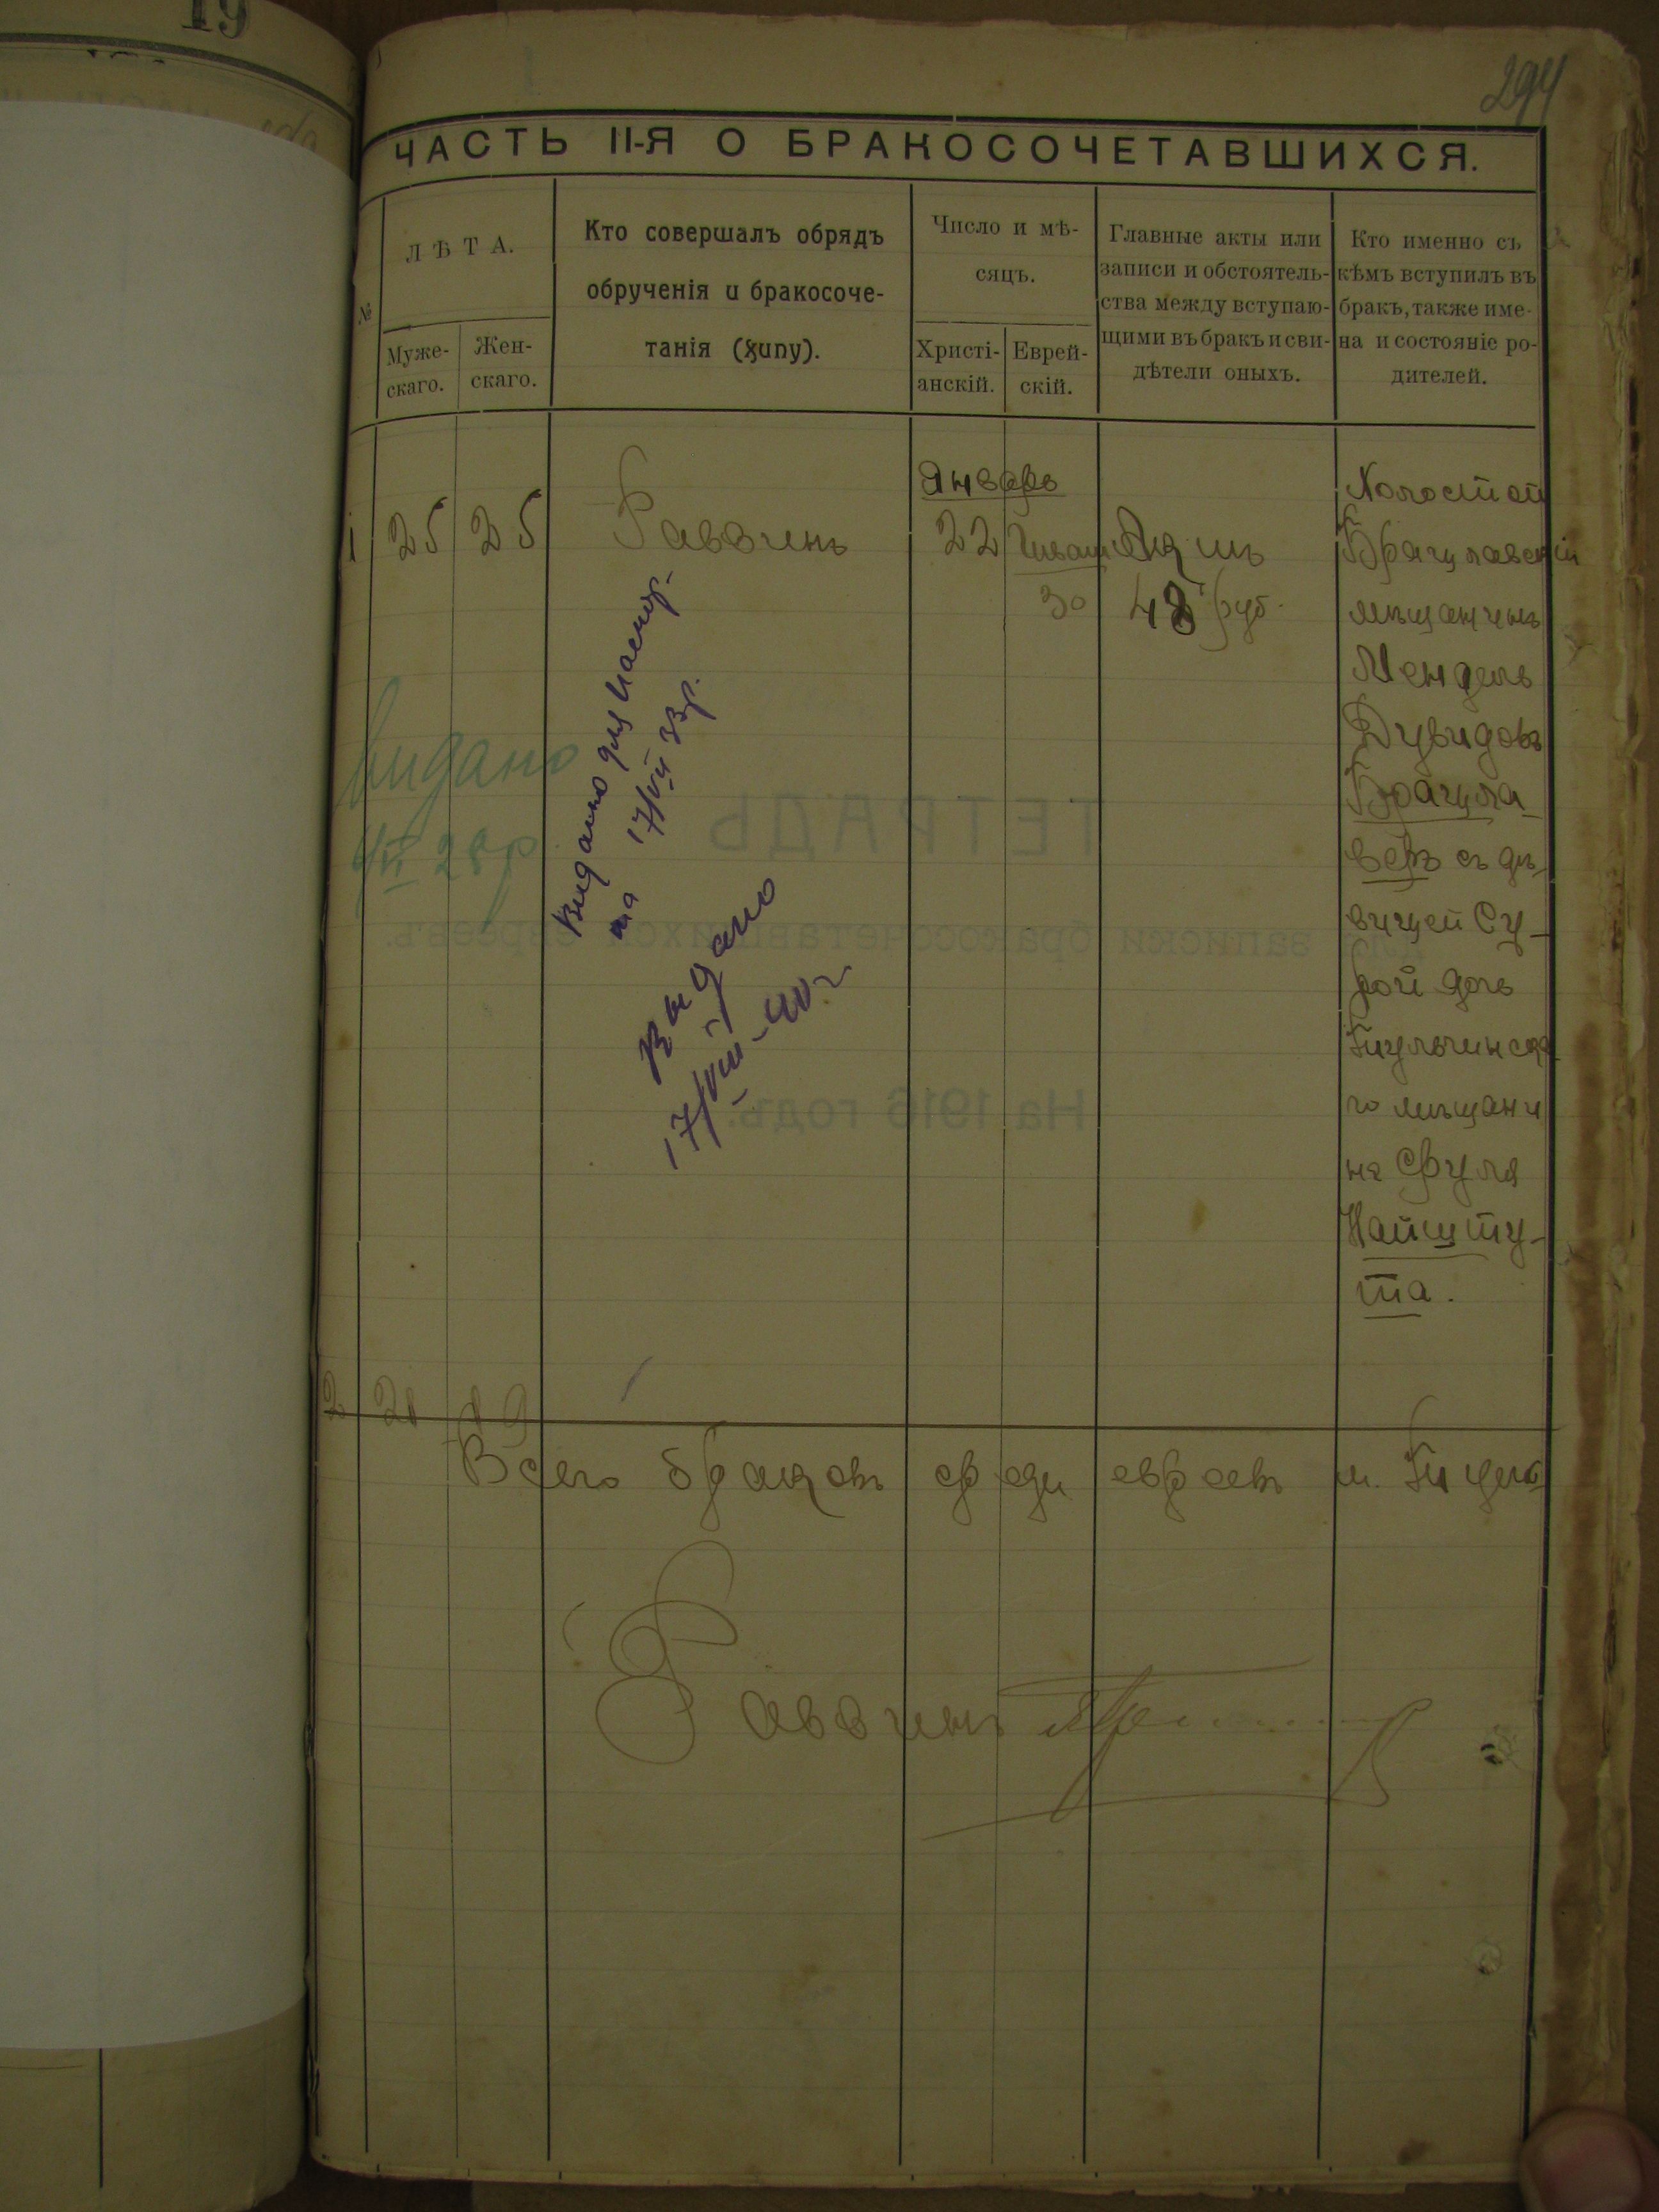 19
294
ЧАСТЬ II-Я О БРАКОСОЧЕТАВШИХСЯ.
№
ЛѢТА.
Муже-
скаго.
Жен-
скаго.
Кто совершалъ обрядъ
обрученія и бракосоче-
танія (хuпу).
Число и мѣ-
сяцъ.
Христі-
анскій.
Еврей-
скій.
Главные акты или
записи и обстоятель-
ства между вступаю-
щими въ бракъ и сви-
дѣтели оныхъ.
Кто именно съ
кѣмъ вступилъ въ
бракъ, также име-
на и состояніе ро-
дителей.
1
25
25
Раввинъ
Январь
22
30
48 руб.
Холостой
Брацлавскій
мѣщанинъ
Мендель
Дувидовъ
Брацла
веръ съ дѣ-
вицей Су-
рой дочь
го мѣщани
на Сруля
Найшту-
та.
видано
Видано для
на 17/VII 33р.
Выдано
17/VIII-40 г
ТЕТРАДЬ
записки бракосочетавшихся евреевъ.
На 1916 годъ.
2
21
19
Всего браковъ среди евреевъ м.
Раввинъ